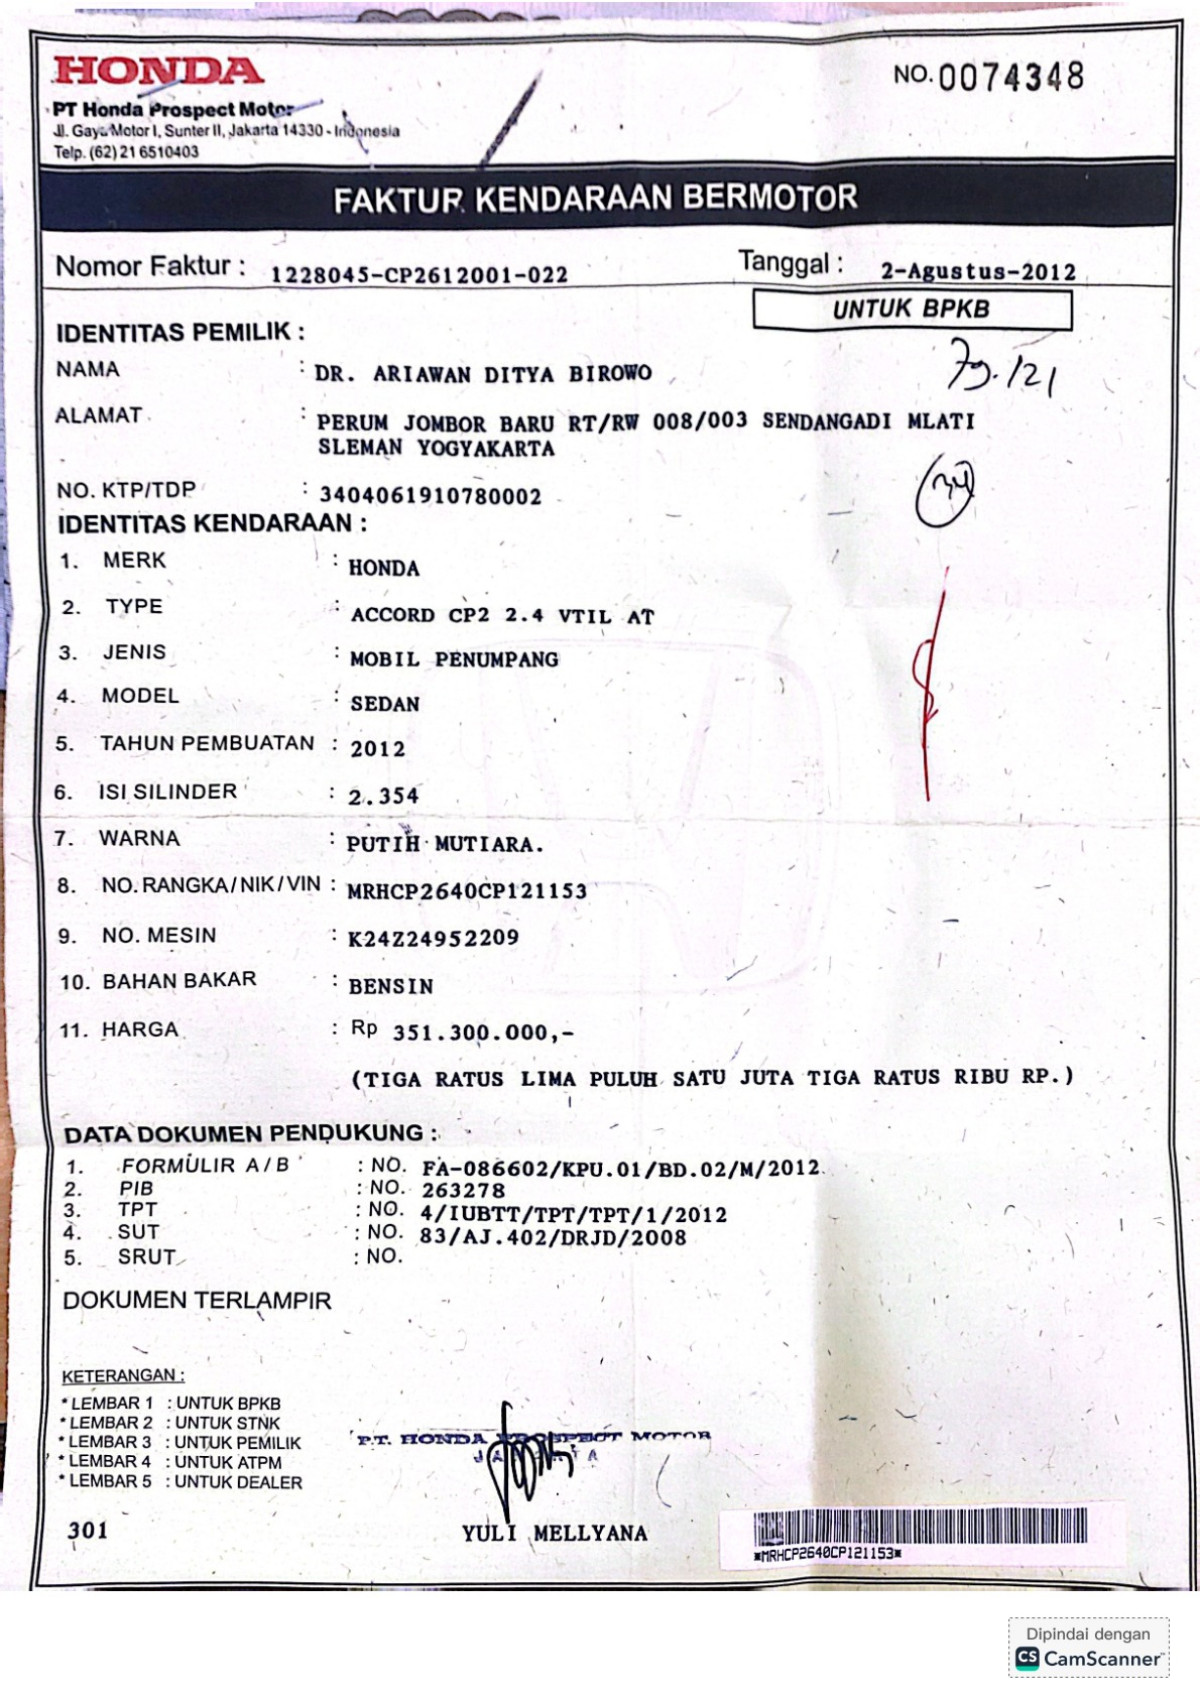 HONDA
PT Honda Prospect Motor
Jl. Gaya Motor I, Sunter II, Jakarta 14330 - Indonesia
Telp. (62) 21 6510403
NO. 0074348
FAKTUR KENDARAAN BERMOTOR
Nomor Faktur : 1228045-CP2612001-022
Tanggal : 2-Agustus-2012
UNTUK BPKB
IDENTITAS PEMILIK :
NAMA : DR. ARIAWAN DITYA BIROWO
ALAMAT : PERUM JOMBOR BARU RT/RW 008/003 SENDANGADI MLATI
SLEMAN YOGYAKARTA
NO. KTP/TDP : 3404061910780002
IDENTITAS KENDARAAN :
1. MERK : HONDA
2. TYPE : ACCORD CP2 2.4 VTIL AT
3. JENIS : MOBIL PENUMPANG
4. MODEL : SEDAN
5. TAHUN PEMBUATAN : 2012
6. ISI SILINDER : 2.354
7. WARNA : PUTIH MUTIARA.
8. NO. RANGKA/NIK/VIN : MRHCP2640CP121153
9. NO. MESIN : K24Z24952209
10. BAHAN BAKAR : BENSIN
11. HARGA : Rp 351.300.000,-
(TIGA RATUS LIMA PULUH SATU JUTA TIGA RATUS RIBU RP.)
DATA DOKUMEN PENDUKUNG :
1. FORMULIR A/B : NO. FA-086602/KPU.01/BD.02/M/2012
2. PIB : NO. 263278
3. TPT : NO. 4/IUBTT/TPT/TPT/1/2012
4. SUT : NO. 83/AJ.402/DRJD/2008
5. SRUT : NO.
DOKUMEN TERLAMPIR
KETERANGAN :
* LEMBAR 1 : UNTUK BPKB
* LEMBAR 2 : UNTUK STNK
* LEMBAR 3 : UNTUK PEMILIK
* LEMBAR 4 : UNTUK ATPM
* LEMBAR 5 : UNTUK DEALER
P.T. HONDA PROSPECT MOTOR
JAKARTA
301
YULI MELLYANA
*MRHCP2640CP121153*
Dipindai dengan
CS CamScanner